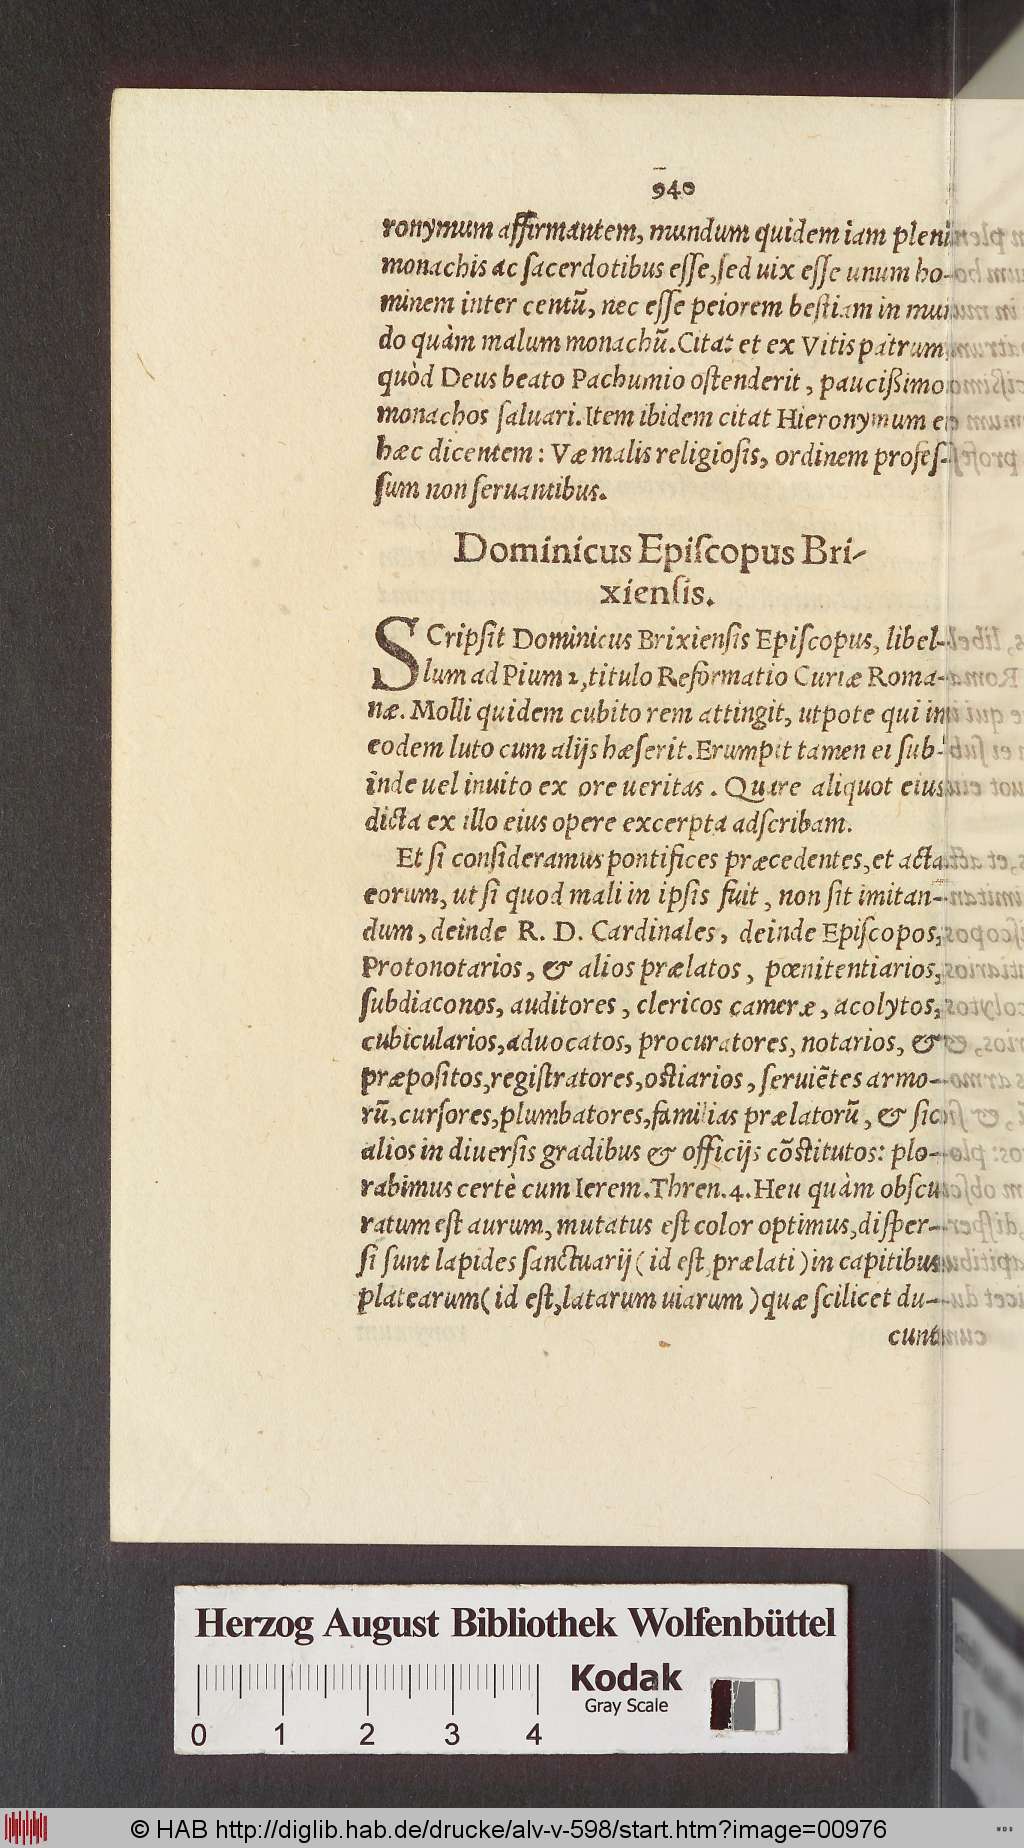 940
ronymum affirmantem, mundum quidem iam pleni
monachis ac sacerdotibus esse, sed uix esse unum ho-
minem inter centū, nec esse peiorem bestiam in mun
do quàm malum monachū. Citat et ex Vitis patrum
quòd Deus beato Pachumio ostenderit, paucißimo
monachos saluari. Item ibidem citat Hieronymum
hæc dicentem: Væ malis religiosis, ordinem profes-
sum non seruantibus.
Dominicus Episcopus Bri-
xiensis.
SCripsit Dominicus Brixiensis Episcopus, libel-
lum ad Pium 2, titulo Reformatio Curiæ Roma-
næ. Molli quidem cubito rem attingit, utpote qui in
eodem luto cum alijs hæserit. Erumpit tamen ei sub-
inde uel inuito ex ore ueritas. Quare aliquot eius
dicta ex illo eius opere excerpta adscribam.
Et si consideramus pontifices præcedentes, et acta
eorum, ut si quod mali in ipsis fuit, non sit imitan-
dum, deinde R. D. Cardinales, deinde Episcopos,
Protonotarios, & alios prælatos, pœnitentiarios,
subdiaconos, auditores, clericos cameræ, acolytos,
cubicularios, aduocatos, procuratores, notarios, &
præpositos, registratores, ostiarios, seruiētes armo-
rū, cursores, plumbatores, familias prælatorū, & sic
alios in diuersis gradibus & officijs cōstitutos: plo-
rabimus certè cum Ierem. Thren. 4. Heu quàm obscu
ratum est aurum, mutatus est color optimus, disper-
si sunt lapides sanctuarij (id est, prælati) in capitibus
platearum (id est, latarum uiarum) quæ scilicet du-
cunt
Herzog August Bibliothek Wolfenbüttel
Kodak
Gray Scale
0 1 2 3 4
© HAB http://diglib.hab.de/drucke/alv-v-598/start.htm?image=00976